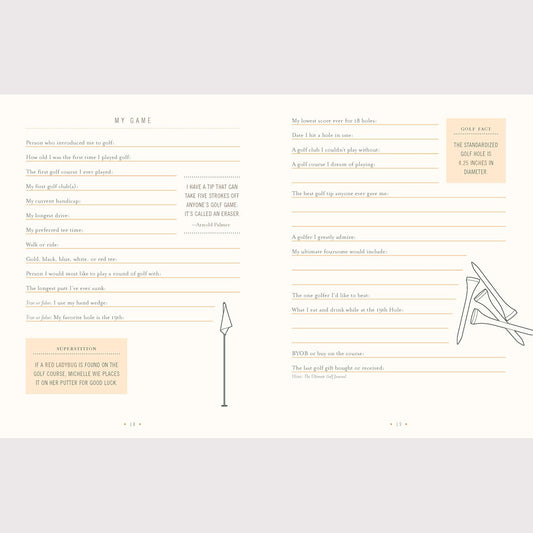 MY GAME
Person who introduced me to golf:
How old I was the first time I played golf:
The first golf course I ever played:
My first golf club(s):
My current handicap:
My longest drive:
My preferred tee time:
Walk or ride:
Gold, black, blue, white, or red tee:
Person I would most like to play a round of golf with:
The longest putt I've ever sunk:
True or false: I use my hand wedge:
True or false: My favorite hole is the 19th:
I HAVE A TIP THAT CAN
TAKE FIVE STROKES OFF
ANYONE'S GOLF GAME:
IT'S CALLED AN ERASER.
—Arnold Palmer
SUPERSTITION
IF A RED LADYBUG IS FOUND ON THE
GOLF COURSE, MICHELLE WIE PLACES
IT ON HER PUTTER FOR GOOD LUCK.
• 18 •
My lowest score ever for 18 holes:
Date I hit a hole in one:
A golf club I couldn't play without:
A golf course I dream of playing:
GOLF FACT
THE STANDARDIZED
GOLF HOLE IS
4.25 INCHES IN
DIAMETER.
The best golf tip anyone ever gave me:
A golfer I greatly admire:
My ultimate foursome would include:
The one golfer I'd like to beat:
What I eat and drink while at the 19th Hole:
BYOB or buy on the course:
The last golf gift bought or received:
The Ultimate Golf Journal
• 19 •